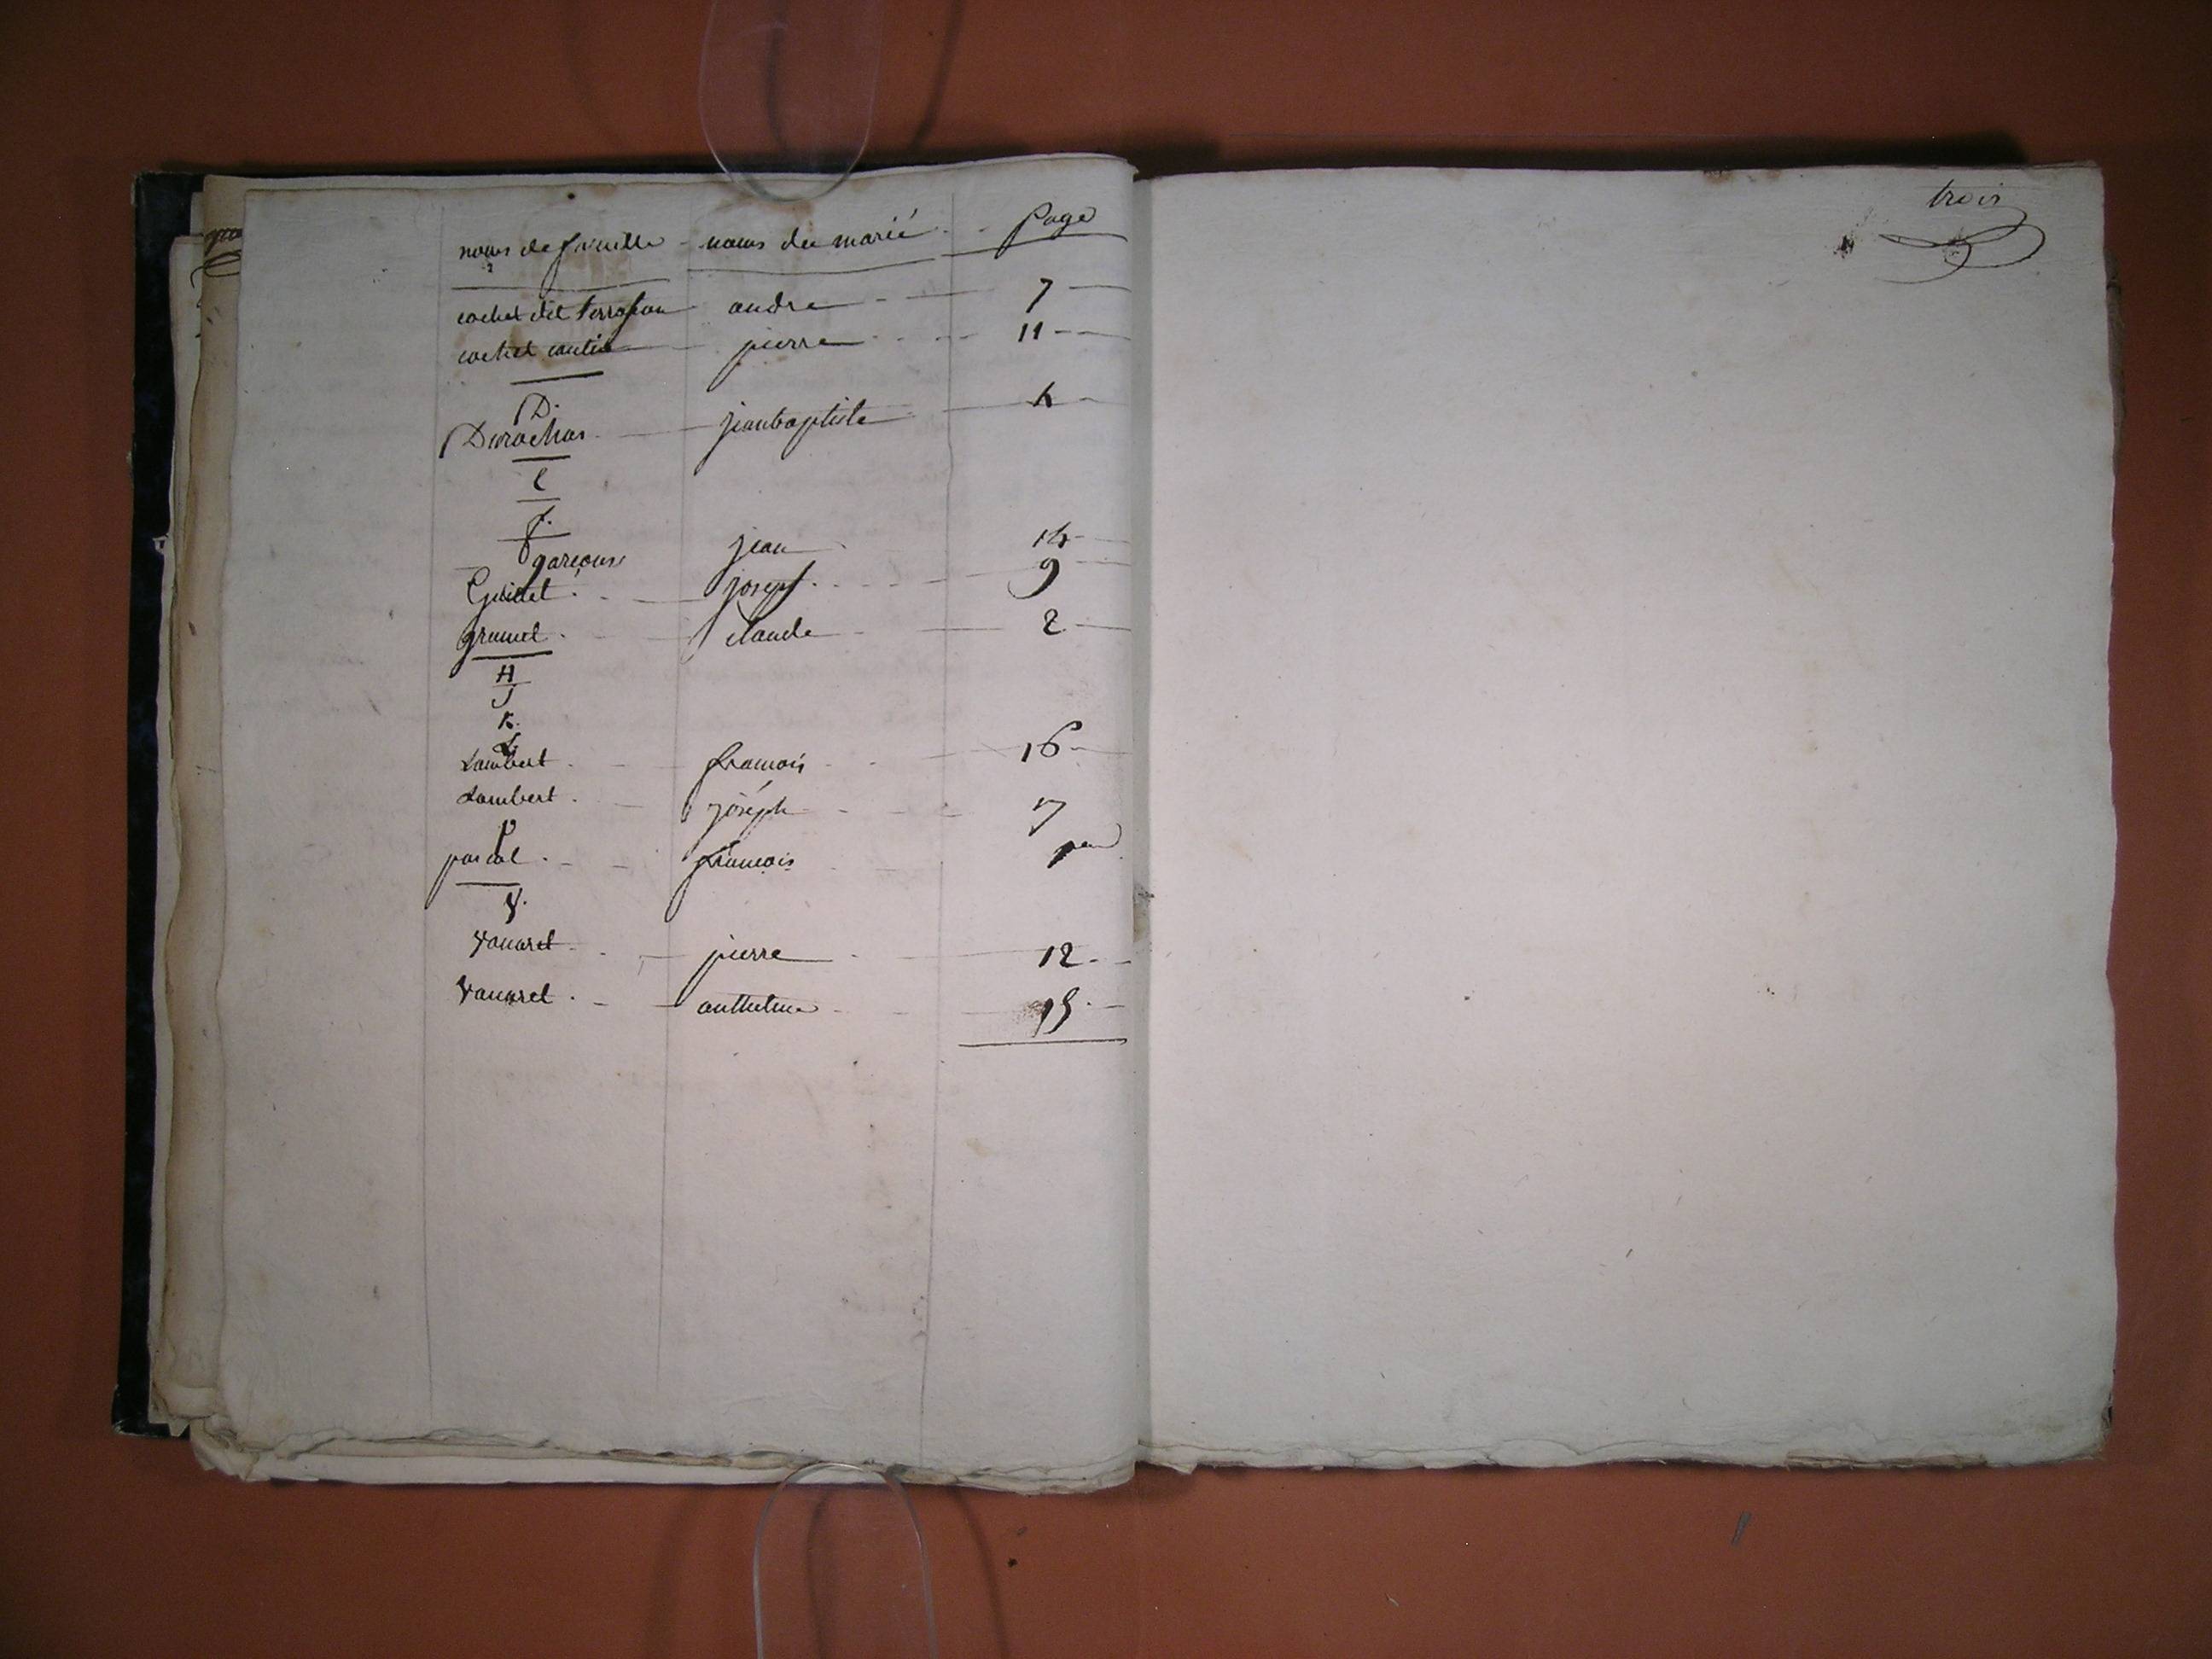 noms de famille - noms du marié - Page
cochet dit terrasson andre 7
cochet pierre 11
D.
Durochas jeanbaptiste 4
E
F.
garçous jean 14
Guillet joseph 9
grumel claude 2
H
J
K.
L.
Lambert francois 16
Lambert joséph 17
P
pascal francois
V.
Vouaret pierre 12
Vouaret anthelme 15
trois